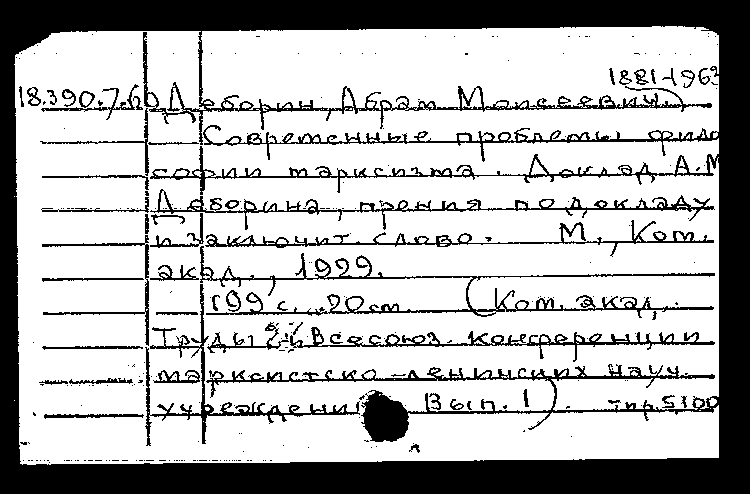 1881-1963
18.390.7.60 Деборин, Абрам Моисеевич.
Современные проблемы фило
софии марксизма. Доклад А.М
Деборина, прения по докладу
и заключит. слово. М., Ком.
акад., 1929.
199 с. 20 см (Ком. акад.
Труды Всесоюз. конференции
марксистско-ленинских науч.
учреждений Вып. 1). тир. 5.100